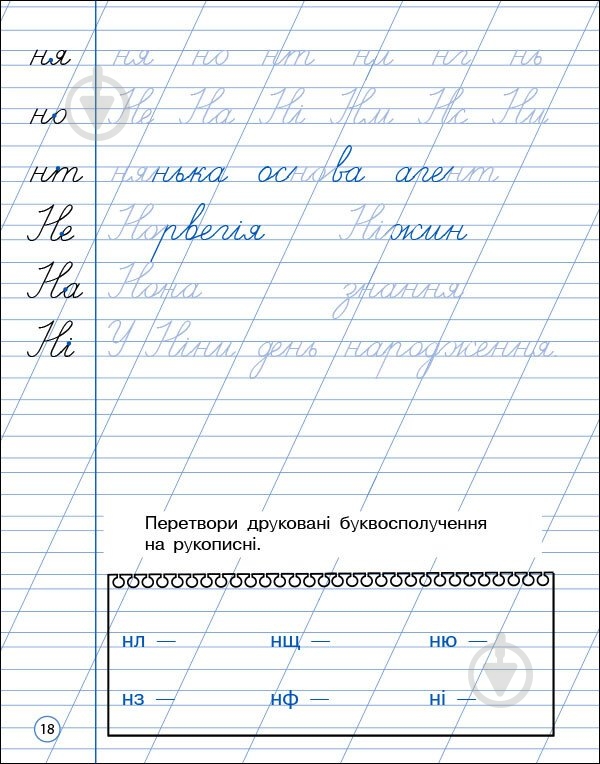 ня ня но нт ни нг нь
но Не На Ні Нм Нк Ни
нт нянька основа агент
Не Норвегія Ніжин
На Нона знання
Ні У Ніни день народження.
Перетвори друковані буквосполучення
на рукописні.
нл — нщ — ню —
нз — нф — ні —
18